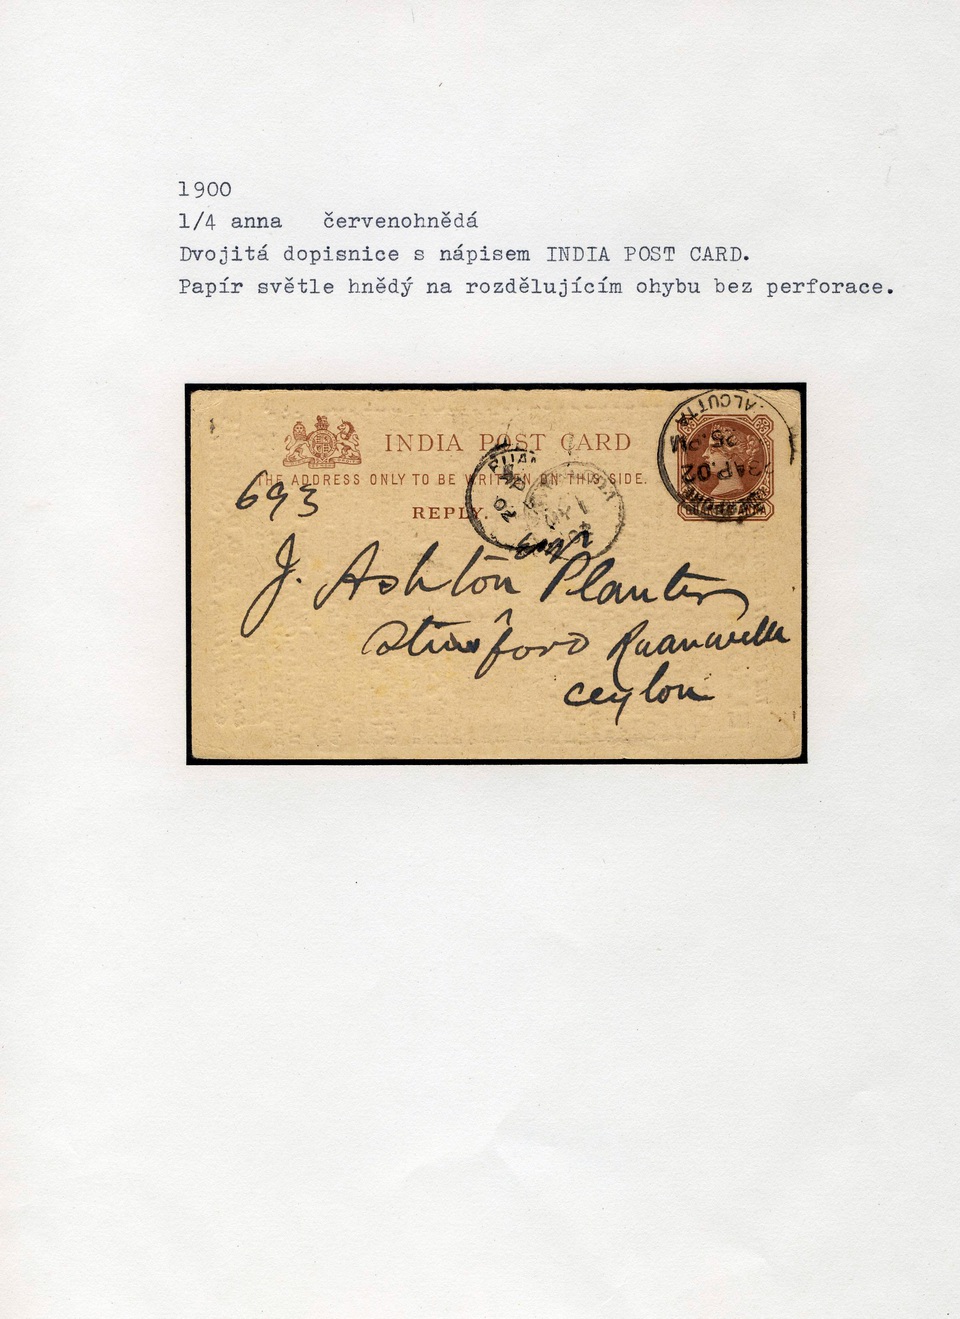 1900
1/4 anna červenohnědá
Dvojitá dopisnice s nápisem INDIA POST CARD.
Papír světle hnědý na rozdělujícím ohybu bez perforace.
INDIA POST CARD
THE ADDRESS ONLY TO BE WRITTEN ON THIS SIDE.
REPLY.
693
J. Ashton Planter
Ruanwella
Ceylon
AP 02
ALCUTTA
AP.02